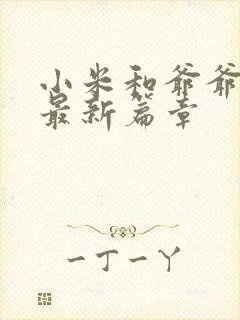 小米和爷爷
最新篇章
一丁一丫